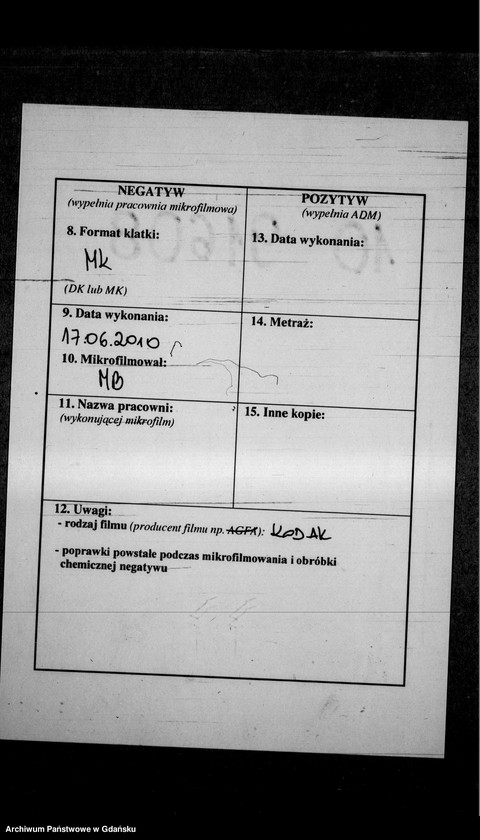 NEGATYW
(wypełnia pracownia mikrofilmowa)
8. Format klatki:
Mk
(DK lub MK)
9. Data wykonania:
17.06.2010
10. Mikrofilmował:
MB
11. Nazwa pracowni:
(wykonującej mikrofilm)
POZYTYW
(wypełnia ADM)
13. Data wykonania:
14. Metraż:
15. Inne kopie:
12. Uwagi:
- rodzaj filmu (producent filmu np. AGFA): KODAK
- poprawki powstałe podczas mikrofilmowania i obróbki
chemicznej negatywu
Archiwum Państwowe w Gdańsku